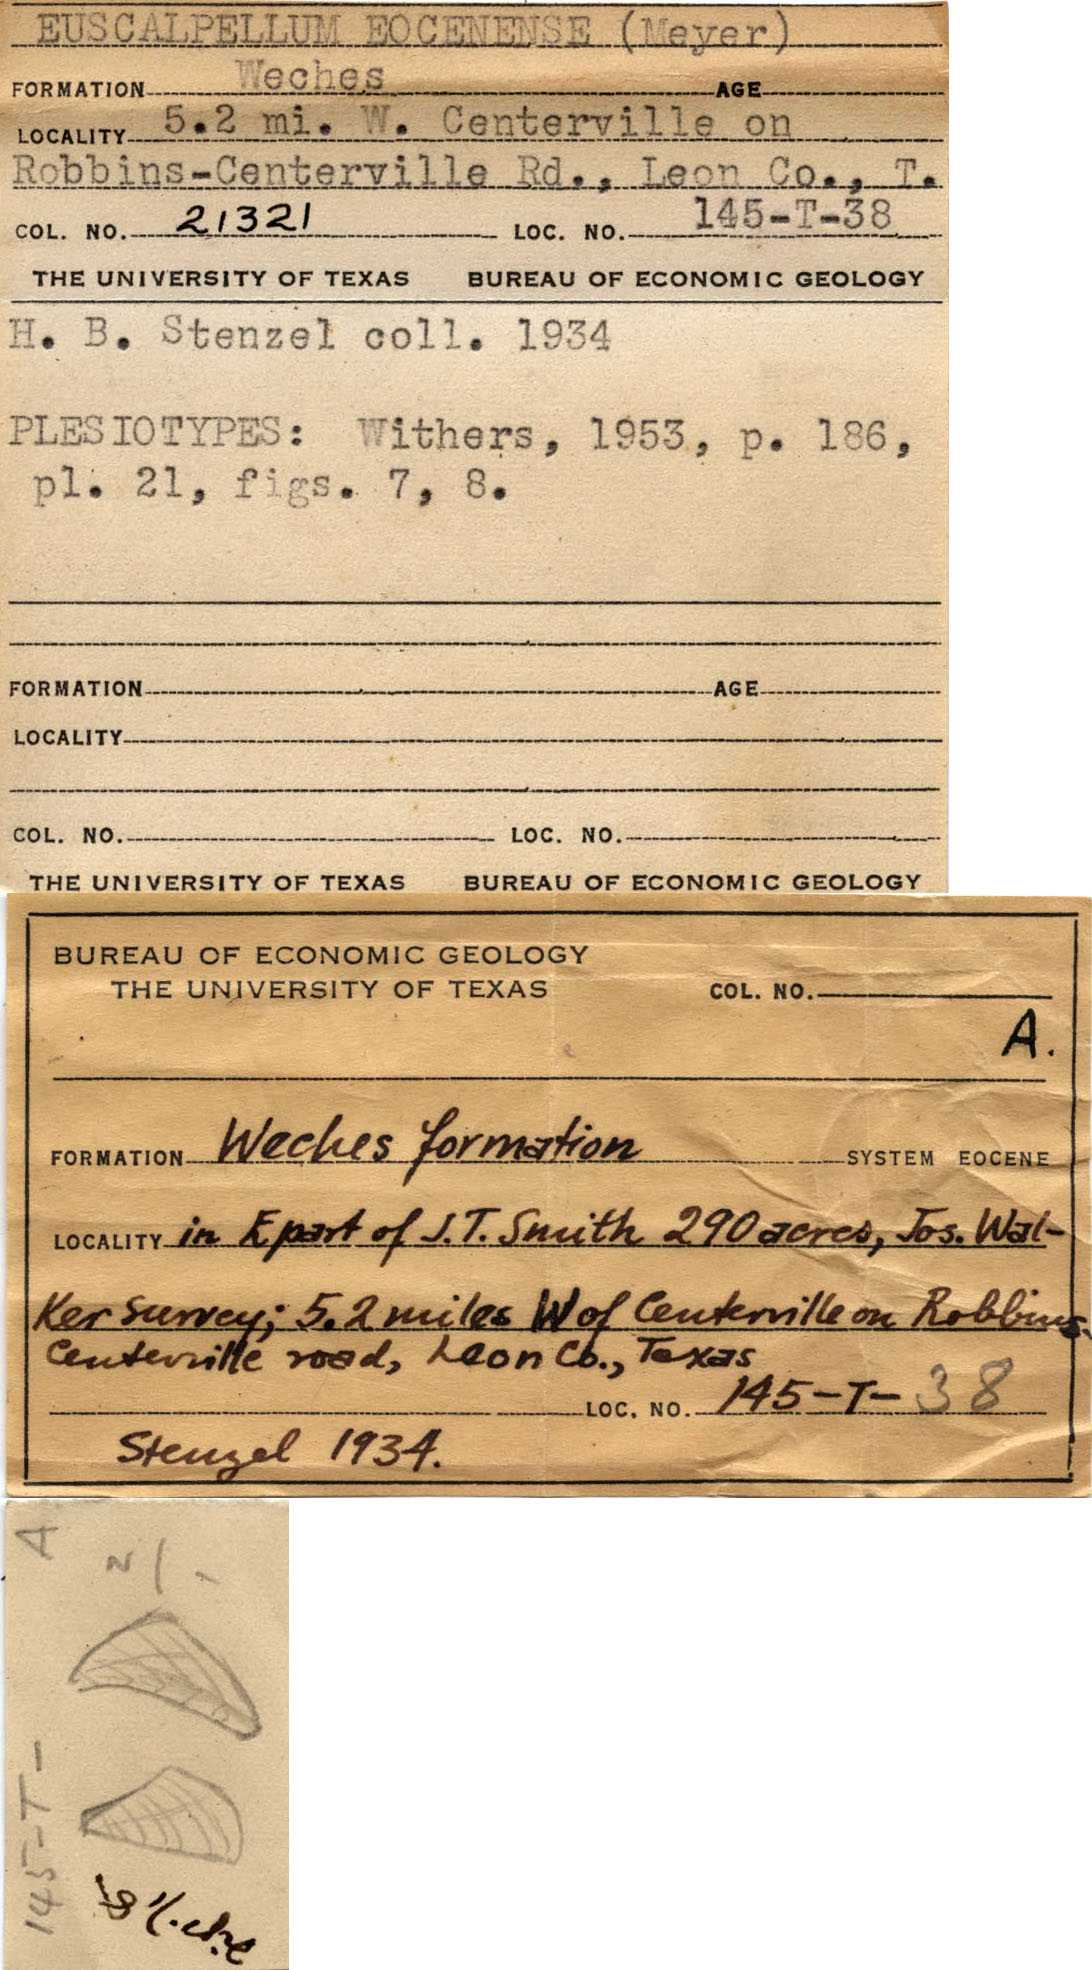 EUSCALPELLUM EOCENENSE (Meyer)
FORMATION Weches AGE
LOCALITY 5.2 mi. W. Centerville on
Robbins-Centerville Rd., Leon Co., T.
COL. NO. 21321 LOC. NO. 145-T-38
THE UNIVERSITY OF TEXAS BUREAU OF ECONOMIC GEOLOGY
H. B. Stenzel coll. 1934
PLESIOTYPES: Withers, 1953, p. 186,
pl. 21, figs. 7, 8.
FORMATION AGE
LOCALITY
COL. NO. LOC. NO.
THE UNIVERSITY OF TEXAS BUREAU OF ECONOMIC GEOLOGY
BUREAU OF ECONOMIC GEOLOGY
THE UNIVERSITY OF TEXAS COL. NO.
A.
FORMATION Weches formation SYSTEM EOCENE
LOCALITY in E part of J.T. Smith 290 acres, Jos. Wal-
ker survey; 5.2 miles W of Centerville on Robbins-
Centerville road, Leon Co., Texas
LOC. NO. 145-T-38
Stenzel 1934.
A
2/1
145-T-